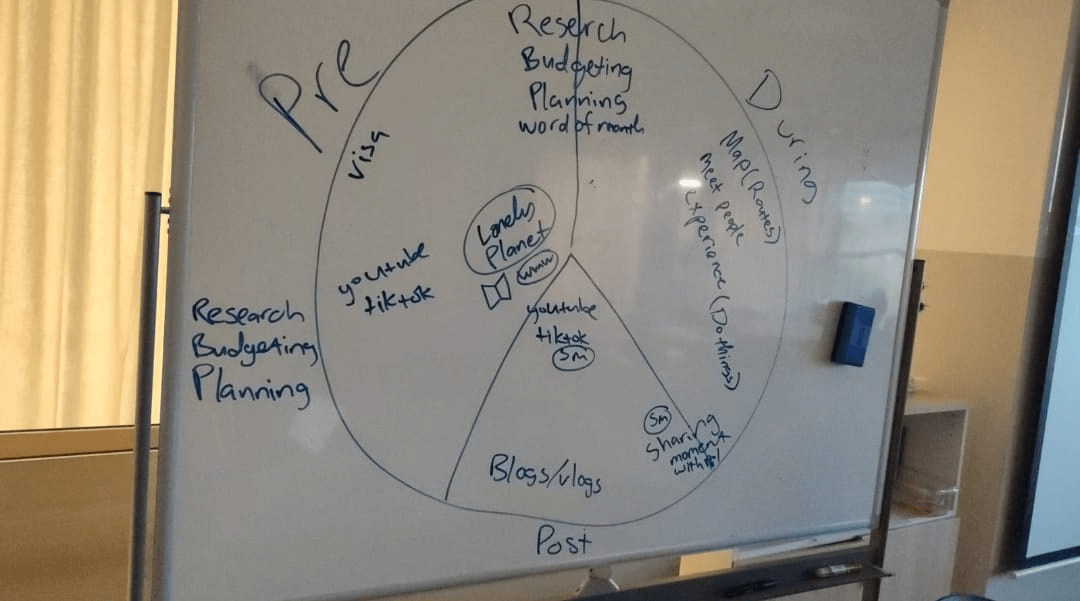 Pre
Research
Budgeting
Planning
word of month
During
visa
Map (Routes)
meet people
experience (Do things)
Lonely
Planet
www
youtube
tiktok
Research
Budgeting
Planning
youtube
tiktok
SM
SM
sharing
moment
with
Blogs/vlogs
Post